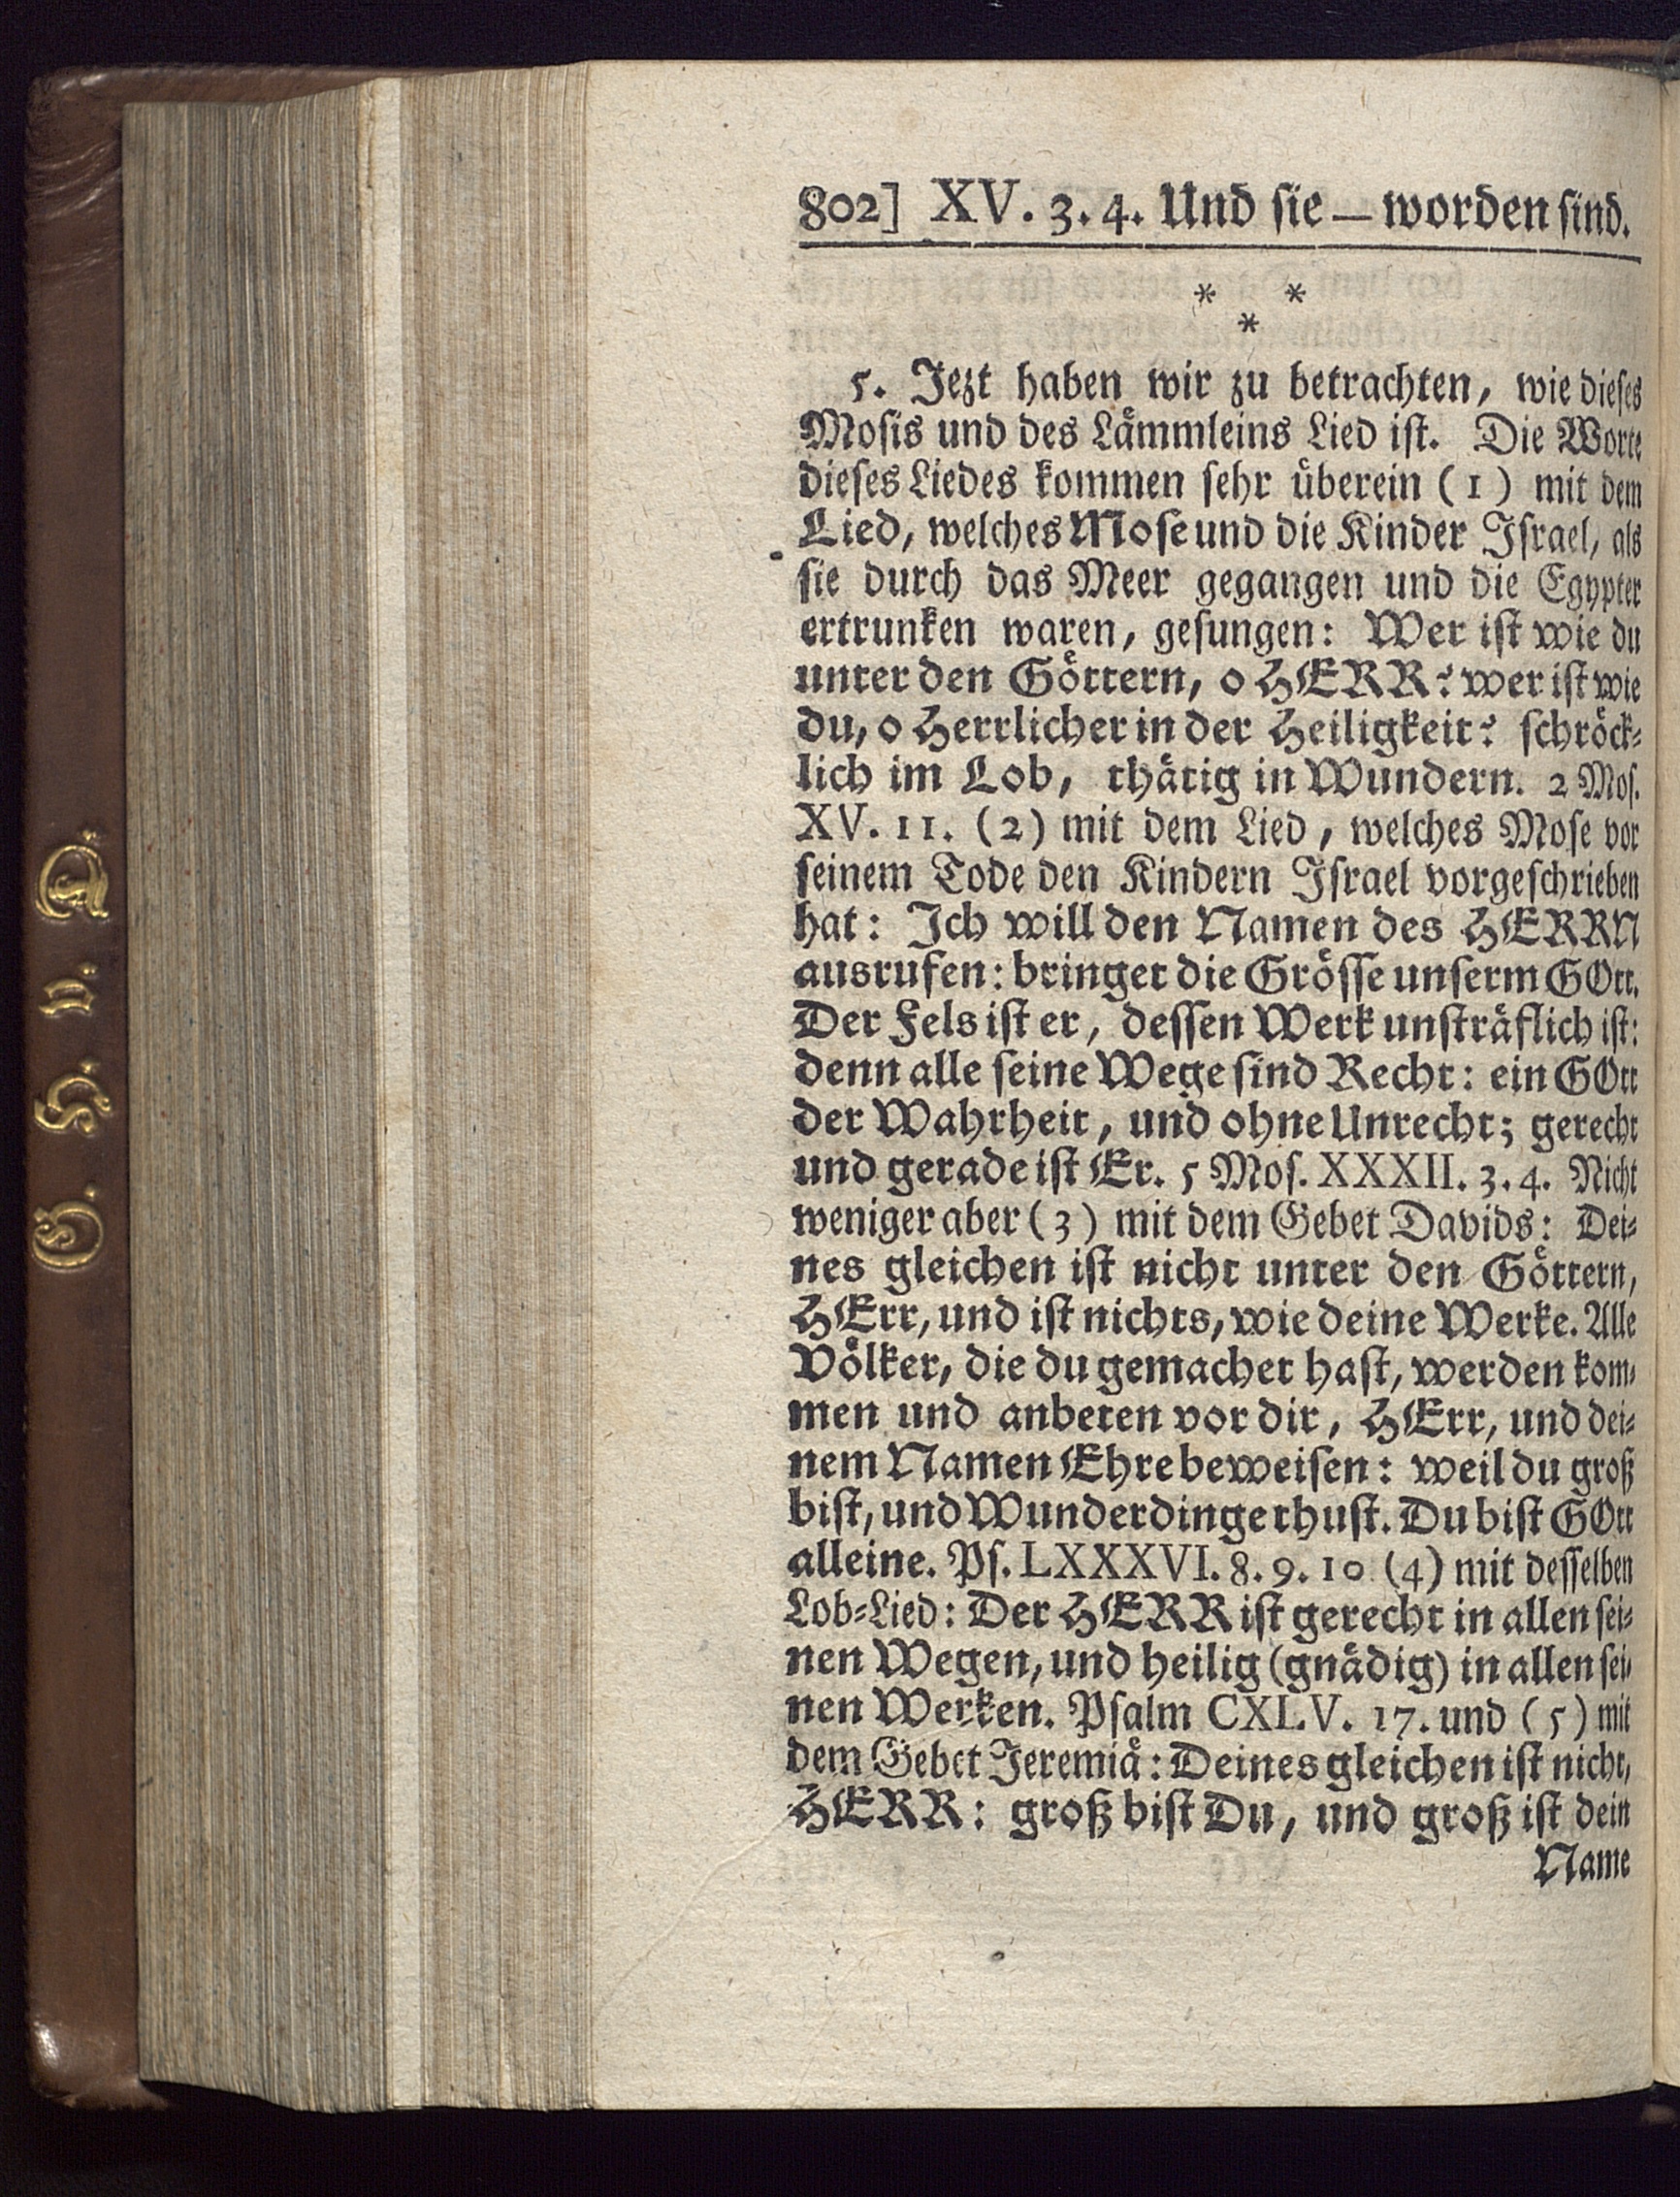 802] XV. 3. 4. Und ſie — worden ſind.
* *
*
5. Jezt haben wir zu betrachten, wie dieſes
Moſis und des Lämmleins Lied iſt. Die Worte
dieſes Liedes kommen ſehr überein (1) mit dem
Lied, welches Moſe und die Kinder Iſrael, als
ſie durch das Meer gegangen und die Egypter
ertrunken waren, geſungen: Wer iſt wie du
unter den Göttern, o HERR? wer iſt wie
du, o Herrlicher in der Heiligkeit? ſchröck-
lich im Lob, thätig in Wundern. 2 Moſ.
XV. 11. (2) mit dem Lied, welches Moſe vor
ſeinem Tode den Kindern Iſrael vorgeſchrieben
hat: Ich will den Namen des HERRN
ausrufen: bringet die Gröſſe unſerm GOtt.
Der Fels iſt er, deſſen Werk unſträflich iſt:
denn alle ſeine Wege ſind Recht: ein GOtt
der Wahrheit, und ohne Unrecht; gerecht
und gerade iſt Er. 5 Moſ. XXXII. 3. 4. Nicht
weniger aber (3) mit dem Gebet Davids: Dei-
nes gleichen iſt nicht unter den Göttern,
HErr, und iſt nichts, wie deine Werke. Alle
Völker, die du gemachet haſt, werden kom-
men und anbeten vor dir, HErr, und dei-
nem Namen Ehre beweiſen: weil du groß
biſt, und Wunderdinge thuſt. Du biſt GOtt
alleine. Pſ. LXXXVI. 8. 9. 10 (4) mit deſſelben
Lob-Lied: Der HERR iſt gerecht in allen ſei-
nen Wegen, und heilig (gnädig) in allen ſei-
nen Werken. Pſalm CXLV. 17. und (5) mit
dem Gebet Jeremiä: Deines gleichen iſt nicht,
HERR: groß biſt Du, und groß iſt dein
Name